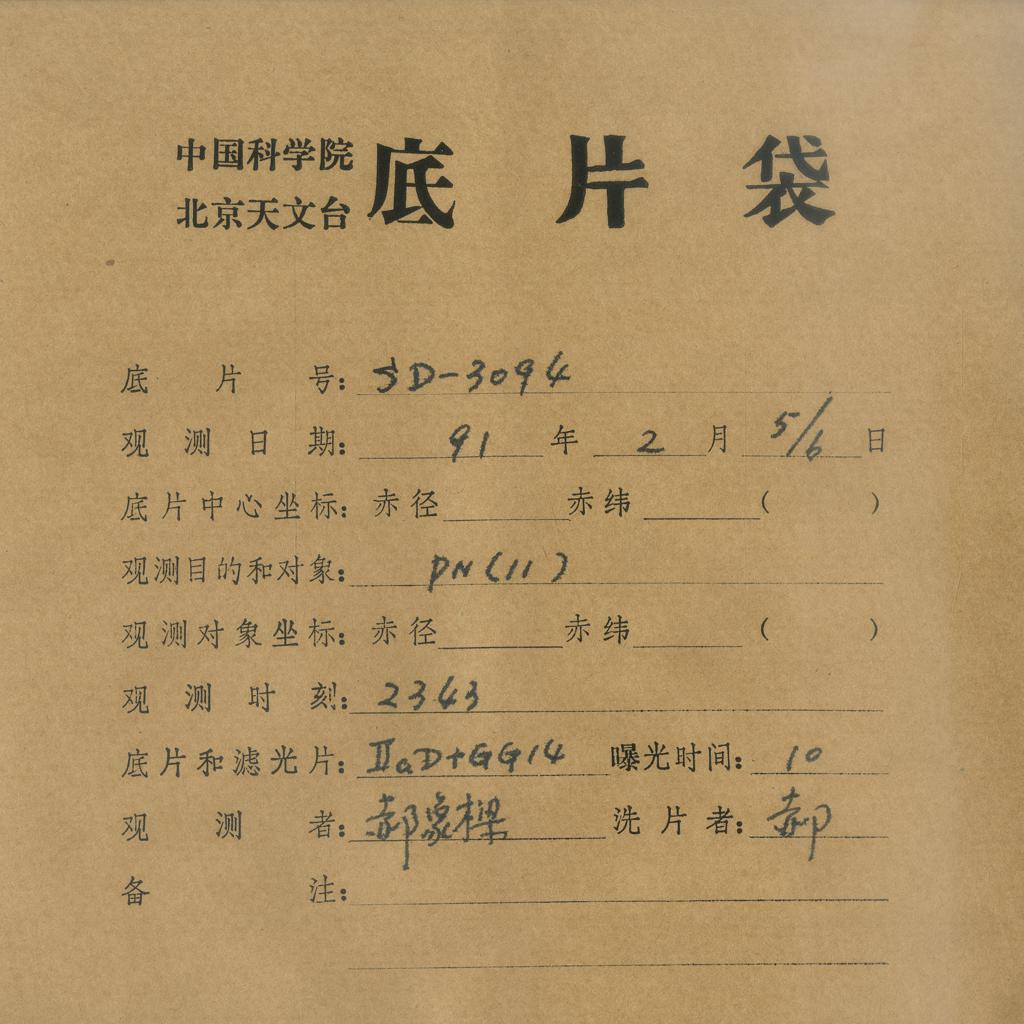 中国科学院
北京天文台
底片袋
底片号：SD-3094
观测日期：91年2月5/6日
底片中心坐标：赤径 赤纬 ( )
观测目的和对象：PN(11)
观测对象坐标：赤径 赤纬 ( )
观测时刻：2343
底片和滤光片：ⅡaD+GG14 曝光时间：10
观测者：郝象樑 洗片者：郝
备注：